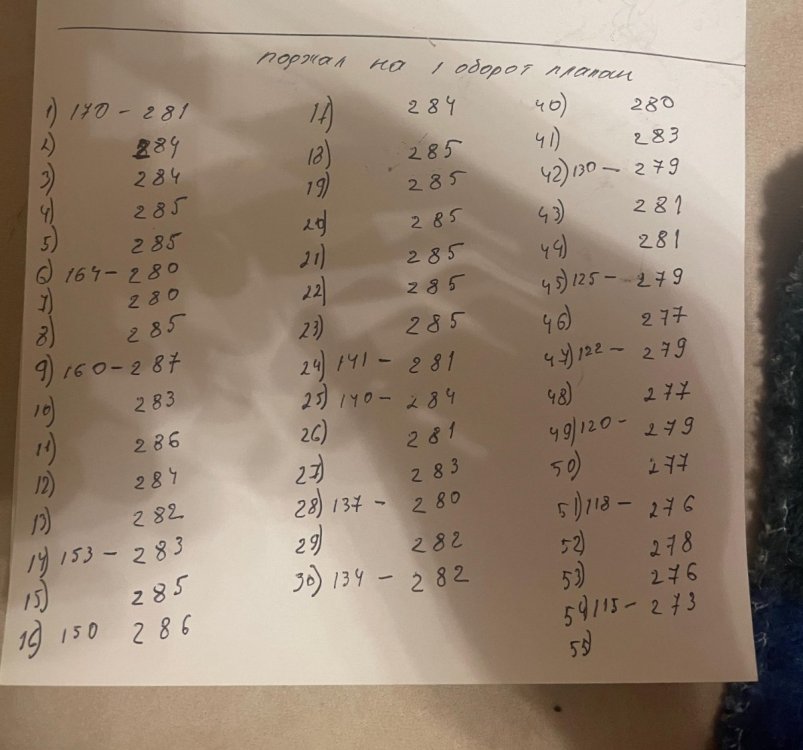 поржал на 1 оборот плапан
1) 170 - 281
2) 284
3) 284
4) 285
5) 285
6) 164 - 280
7) 280
8) 285
9) 160 - 287
10) 283
11) 286
12) 284
13) 282
14) 153 - 283
15) 285
16) 150 286
17) 284
18) 285
19) 285
20) 285
21) 285
22) 285
23) 285
24) 141 - 281
25) 140 - 284
26) 281
27) 283
28) 137 - 280
29) 282
30) 134 - 282
40) 280
41) 283
42) 130 - 279
43) 281
44) 281
45) 125 - 279
46) 277
47) 122 - 279
48) 277
49) 120 - 279
50) 277
51) 118 - 276
52) 278
53) 276
54) 115 - 273
55)